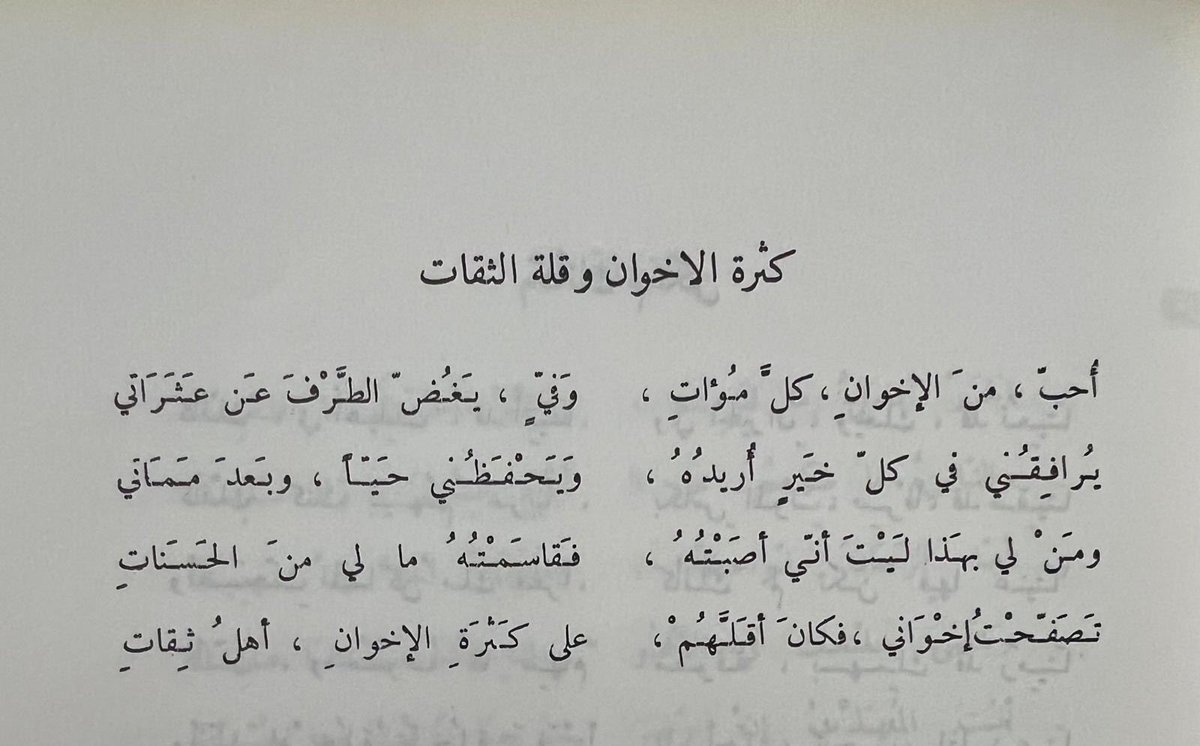 كثرة الاخوان وقلة الثقات
أُحبّ ، منَ الإخوانِ ، كلَّ مُؤاتِ ، وَفيٍّ ، يَغُضّ الطَّرْفَ عَن عَثَرَاتي
يُرافِقُني في كلّ خَيرٍ أُريدُهُ ، وَيَحْفَظُني حَيّاً ، وبَعدَ مَمَاتي
ومَنْ لي بهَذا لَيْتَ أنّي أصَبْتُهُ ، فَقاسَمْتُهُ ما لي منَ الحَسَناتِ
تَصَفّحْتُ إخْوَاني ، فكانَ أقَلَّهُمْ ، على كَثْرَةِ الإخوانِ ، أهلُ ثِقاتِ